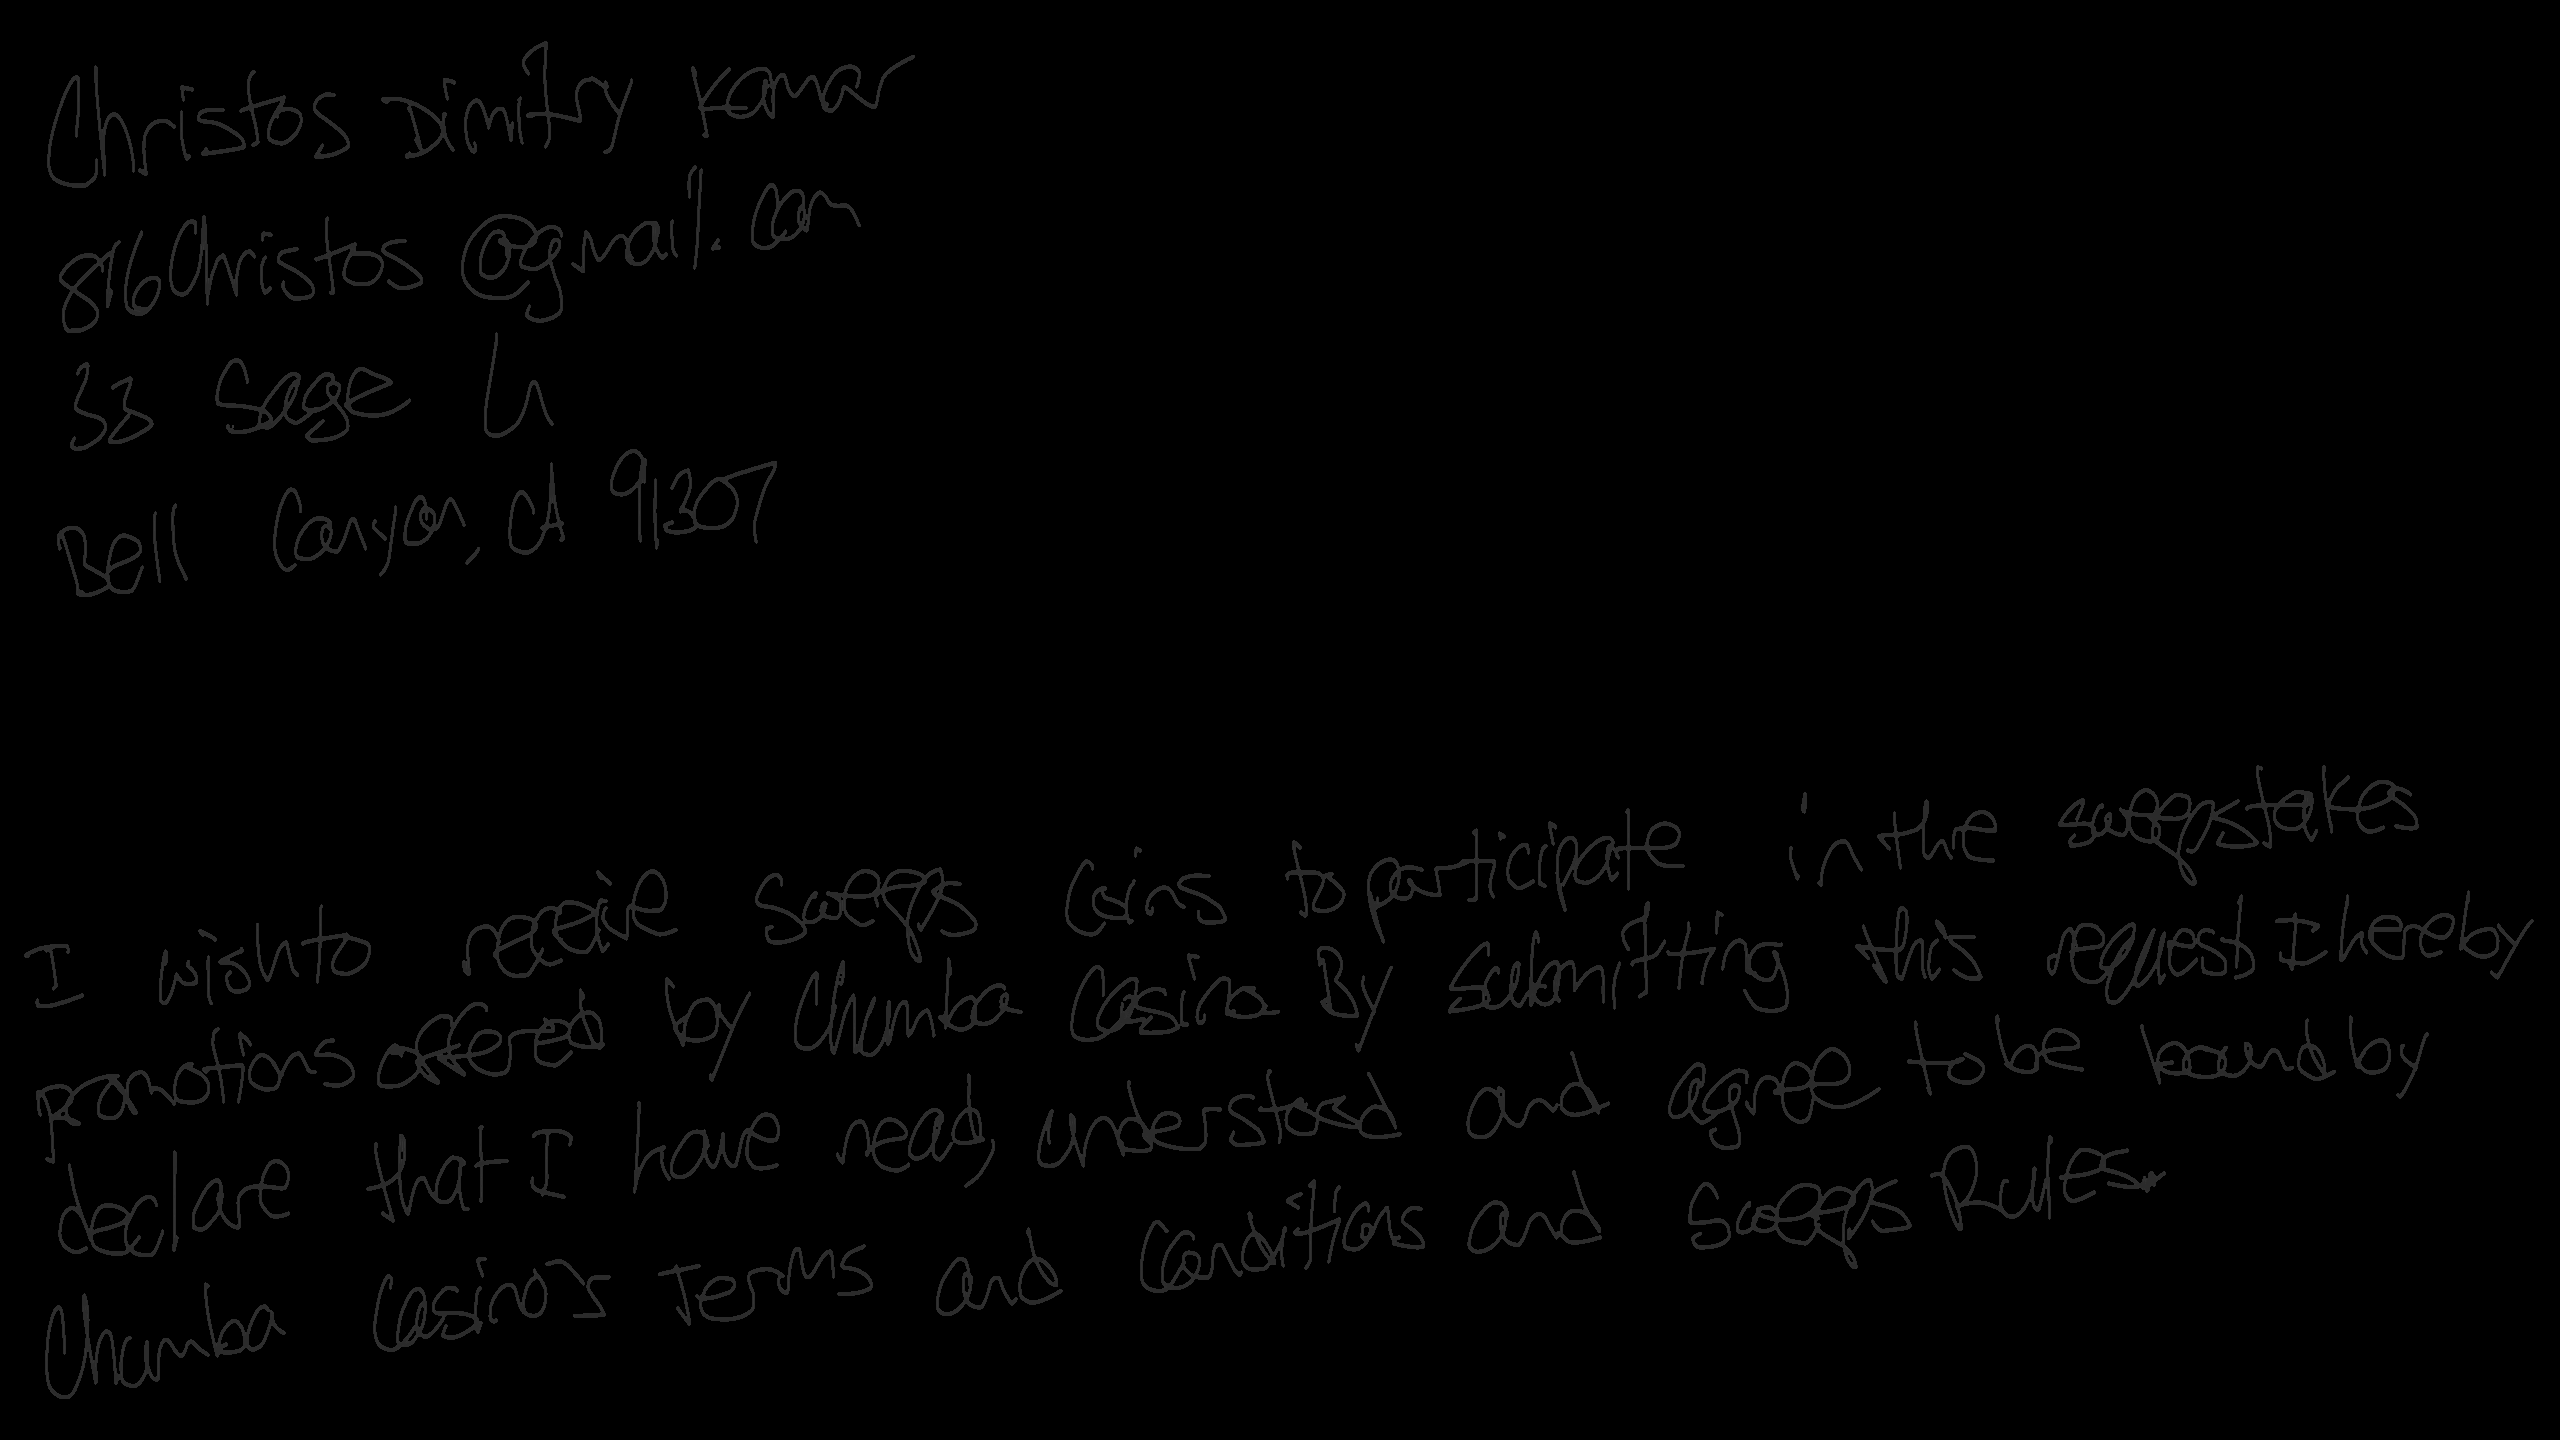 Christos Dimitry Kamar
816Christos@gmail.com
33 Sage Ln
Bell Canyon, CA 91307
I wish to receive Sweeps Coins to participate in the sweepstakes
promotions offered by Chumba Casino. By submitting this request I hereby
declare that I have read, understood and agree to be bound by
Chumba Casino's Terms and Conditions and Sweeps Rules.